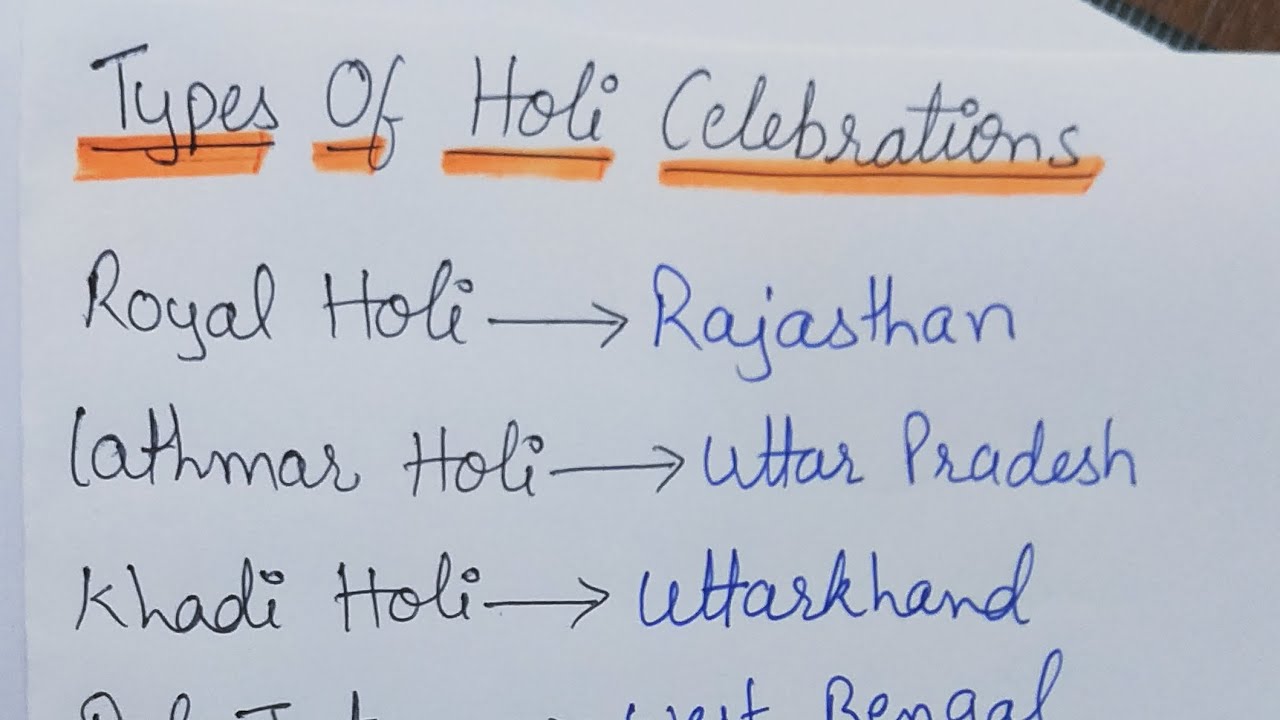 Types Of Holi Celebrations
Royal Holi → Rajasthan
Lathmar Holi → Uttar Pradesh
Khadi Holi → Uttarkhand
West Bengal